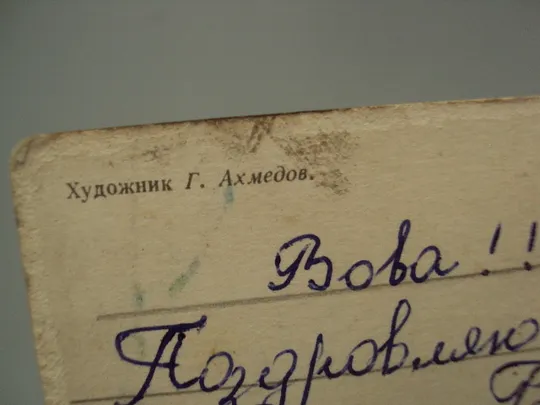 Художник Г. Ахмедов.
Вова!!
Поздравляю